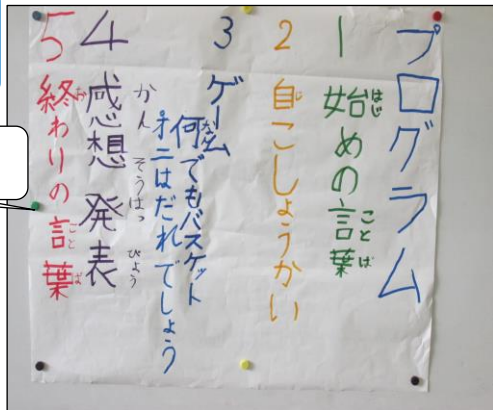 プログラム
1 始めの言葉
はじ ことば
2 自こしょうかい
じ
3 ゲーム
何でもバスケット
なん
オニはだれでしょう
4 感想発表
かんそうはっぴょう
5 終わりの言葉
お ことば